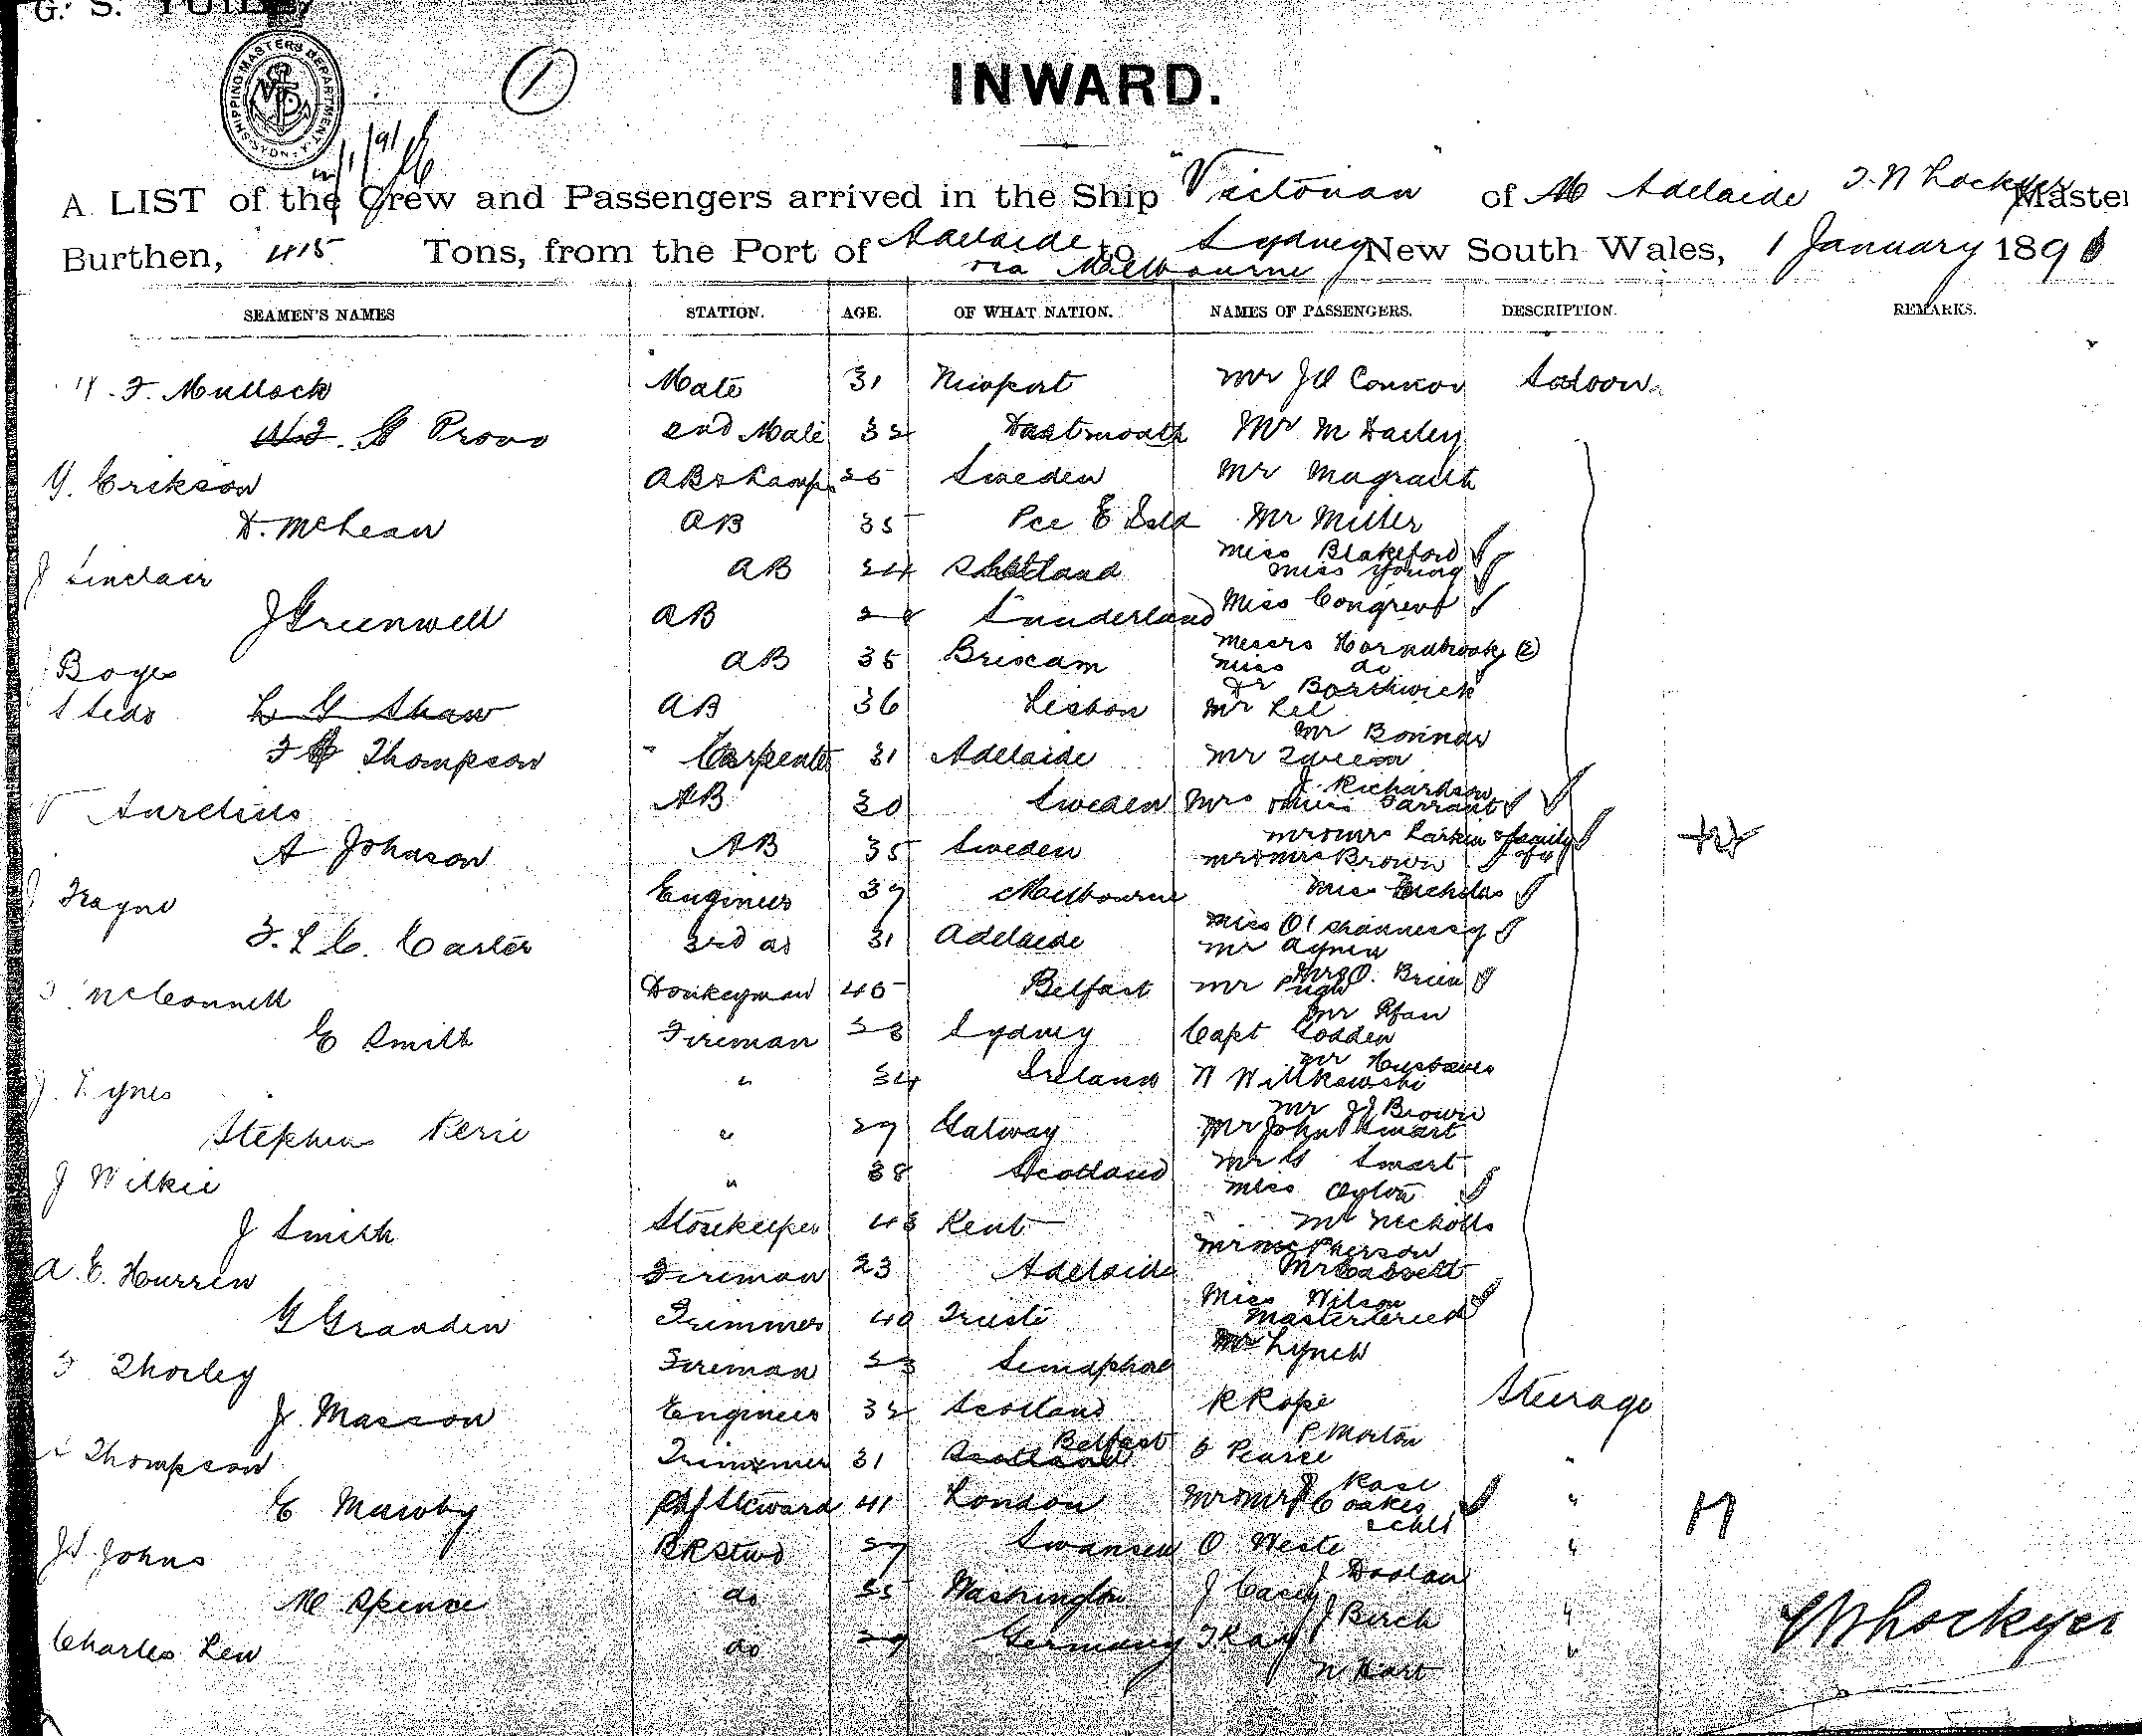 G. S. YUILL
SHIPPING MASTERS DEPARTMENT SYDNEY
1
INWARD.
A LIST of the Crew and Passengers arrived in the Ship "Victorian" of Adelaide Master
Burthen, 415 Tons, from the Port of Adelaide to Sydney New South Wales, 1 January 1891
via Melbourne
SEAMEN'S NAMES STATION. AGE. OF WHAT NATION. NAMES OF PASSENGERS. DESCRIPTION. REMARKS.
F. Mullock Mate 31 Newport Mr J O Connor Saloon
G Provo 2nd Mate 32 Dartmouth Mr M Dailey
Y. Erikson AB & Lamps Sweden Mr Magrath
D. McLean AB 35 Pce E Isld Mr Miller
Miss Blakeford
J Sinclair AB 24 Miss Young
J Greenwell AB Sunderland Miss Congreve
Messrs Hornabrook (2)
Boyes AB 35 Brixam Miss do
Dr Borthwick
L G Shaw AB 36 Lisbon Mr Lee
Mr Bonnar
F Thompson Carpenter 31 Adelaide Mr
J Richardson
Aurelius AB 30 Sweden Mrs & Miss Tarrant
Mr & Mrs Larkin & family
A Johnson AB 35 Sweden Mr & Mrs Brown
Miss Nicholas
Trayne Engineer 37 Melbourne
Miss O'Shannessy
F. L. C. Carter 3rd do 31 Adelaide Mr
Mrs O. Brien
McConnell Donkeyman 45 Belfast Mr Pugh
Mr
E Smith Fireman 28 Sydney Capt Godden
Mr
J. Tynes " 34 Ireland N Witkowski
Mr J J Brown
Stephen " 27 Galway Mr John Smart
Mr G Smart
J Wilkie " 38 Scotland Miss
Mr Nicholls
J Smith Storekeeper 43 Kent
Mr McPherson
A. E. Hurren Fireman 23 Adelaide
Miss Wilson
G Grandin Trimmer 40 Trieste Master
Mr Lynch
F Thorley Fireman 23 Semaphore
J. Masson Engineer 32 Scotland R Rope Steerage
P Morton
Thompson Trimmer 31 Scotland Belfast Pearce "
Rose
E Mawby Steward 41 London Mr & Mrs Coakes "
& child
J Johns 27 Swansea O "
J Doolan
M Spence do 25 Washington J Casey
J Birch "
Charles Lew do 29 Germany T Kay "
N Hart